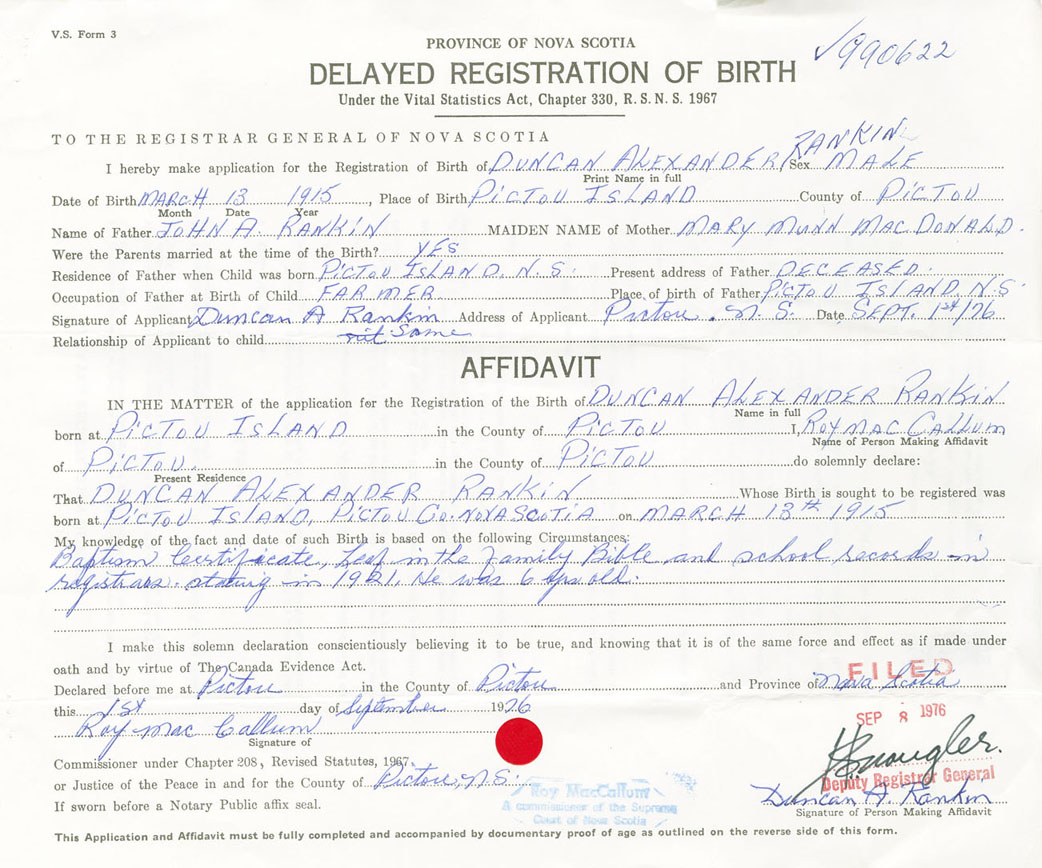 V.S. Form 3
✓990622
PROVINCE OF NOVA SCOTIA
DELAYED REGISTRATION OF BIRTH
Under the Vital Statistics Act, Chapter 330, R.S.N.S. 1967
TO THE REGISTRAR GENERAL OF NOVA SCOTIA
RANKIN
I hereby make application for the Registration of Birth of DUNCAN ALEXANDER / Sex MALE
Print Name in full
Date of Birth MARCH 13 1915, Place of Birth PICTOU ISLAND County of PICTOU
Month Date Year
Name of Father JOHN A. RANKIN MAIDEN NAME of Mother MARY MUNN MACDONALD.
Were the Parents married at the time of the Birth? YES
Residence of Father when Child was born PICTOU ISLAND. N.S. Present address of Father DECEASED.
Occupation of Father at Birth of Child FARMER. Place of birth of Father PICTOU ISLAND N.S.
Signature of Applicant Duncan A Rankin Address of Applicant Pictou. N.S. Date SEPT. 1st/76
Relationship of Applicant to child Same
AFFIDAVIT
IN THE MATTER of the application for the Registration of the Birth of DUNCAN ALEXANDER RANKIN
Name in full
born at PICTOU ISLAND in the County of PICTOU I, ROY MAC CALLUM
Name of Person Making Affidavit
of PICTOU. in the County of PICTOU do solemnly declare:
Present Residence
That DUNCAN ALEXANDER RANKIN Whose Birth is sought to be registered was
born at PICTOU ISLAND, PICTOU CO. NOVA SCOTIA on MARCH 13th 1915
My knowledge of the fact and date of such Birth is based on the following Circumstances:
Baptism Certificate, in the Family Bible and school records in
registrars. stating in 1921, He was 6 yrs old.
I make this solemn declaration conscientiously believing it to be true, and knowing that it is of the same force and effect as if made under
oath and by virtue of The Canada Evidence Act.
FILED
Declared before me at Pictou in the County of Pictou and Province of Nova Scotia
this 1st day of September 1976
SEP 8 1976
Roy Mac Callum
Signature of
Commissioner under Chapter 208, Revised Statutes, 1967.
or Justice of the Peace in and for the County of Pictou, N.S.
Deputy Registrar General
Roy MacCallum
A commissioner of the Supreme
Court of Nova Scotia
Duncan A. Rankin
Signature of Person Making Affidavit
If sworn before a Notary Public affix seal.
This Application and Affidavit must be fully completed and accompanied by documentary proof of age as outlined on the reverse side of this form.